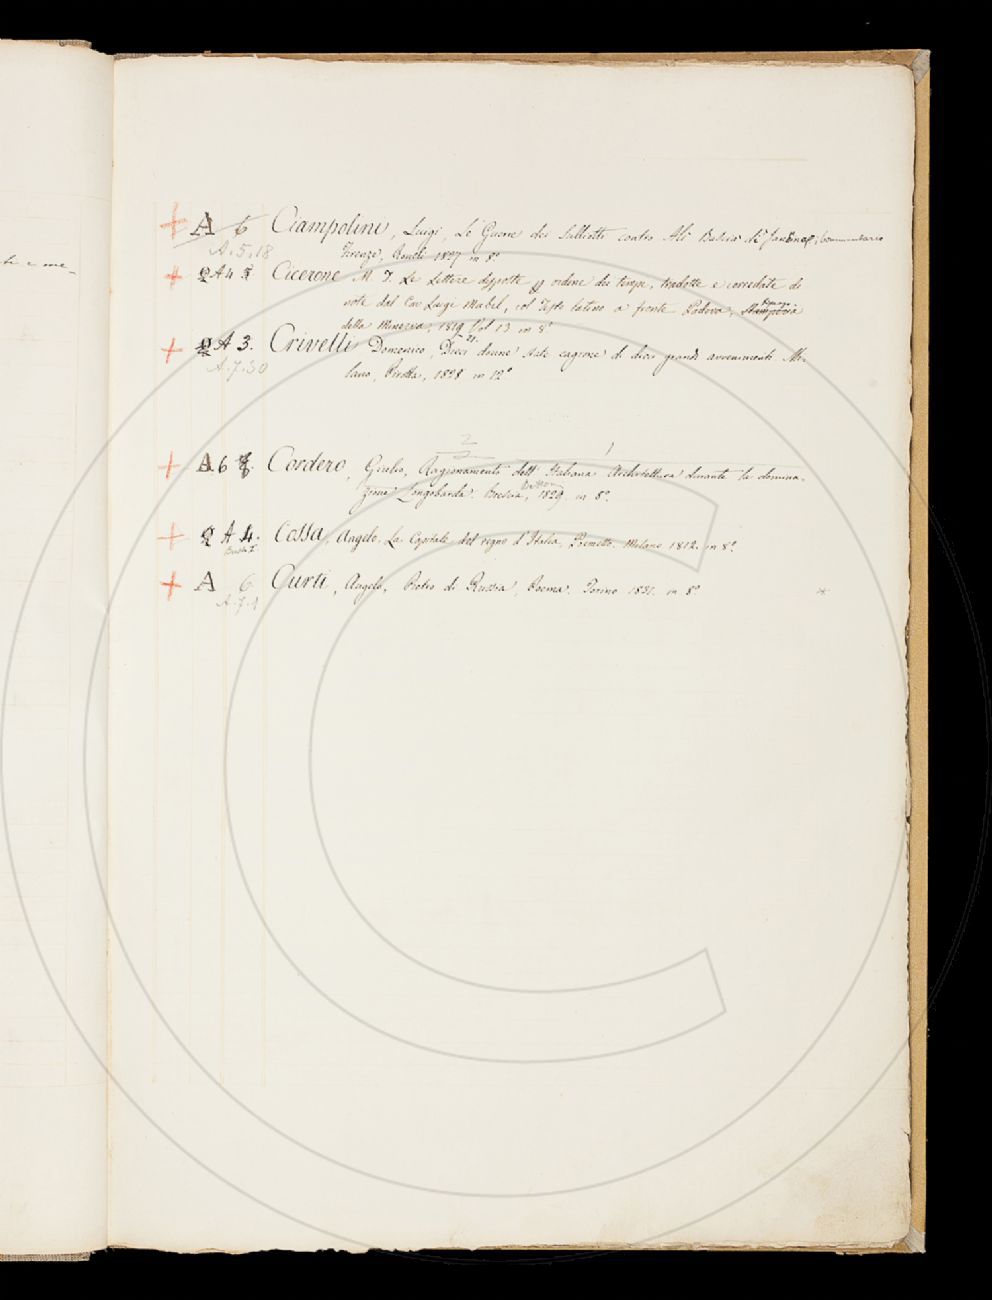 + A 6 Ciampolini, Luigi, Le Guerre dei Sulliotti contro Alì Bascià di Janina, Commentario
A.5.18 Firenze, 1827 in 8°
+ A 4 Cicerone M. T. Le Lettere disposte ordine dei tempi, tradotte e corredate di
note dal Cav Luigi Mabil, col Testo latino a fronte Padova, Stamperia
della Minerva, 1819 Vol 13 in 8°
21.
+ A 3. Crivelli Domenico, Dieci donne state cagione di dieci grandi avvenimenti. Mi-
A.7.30 lano, Pirotta, 1828 in 12°
2 1
+ A 6 Cordero, Giulio, Ragionamento dell' Italiana Architettura durante la domina-
zione Longobarda. Brescia, Bettoni, 1829. in 8°.
+ A 4. Cossa, Angelo. La Capitale del regno d'Italia, Poemetto. Milano 1812. in 8°.
+ A 6. Curti, Angelo, Pietro di Russia, Poema. Torino 1831. in 8°
A.7.1